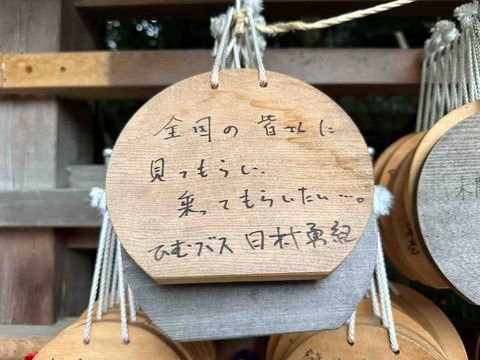 全国の 皆さんに
見てもらい、
乗ってもらいたい…。
ひむバス 日村勇紀